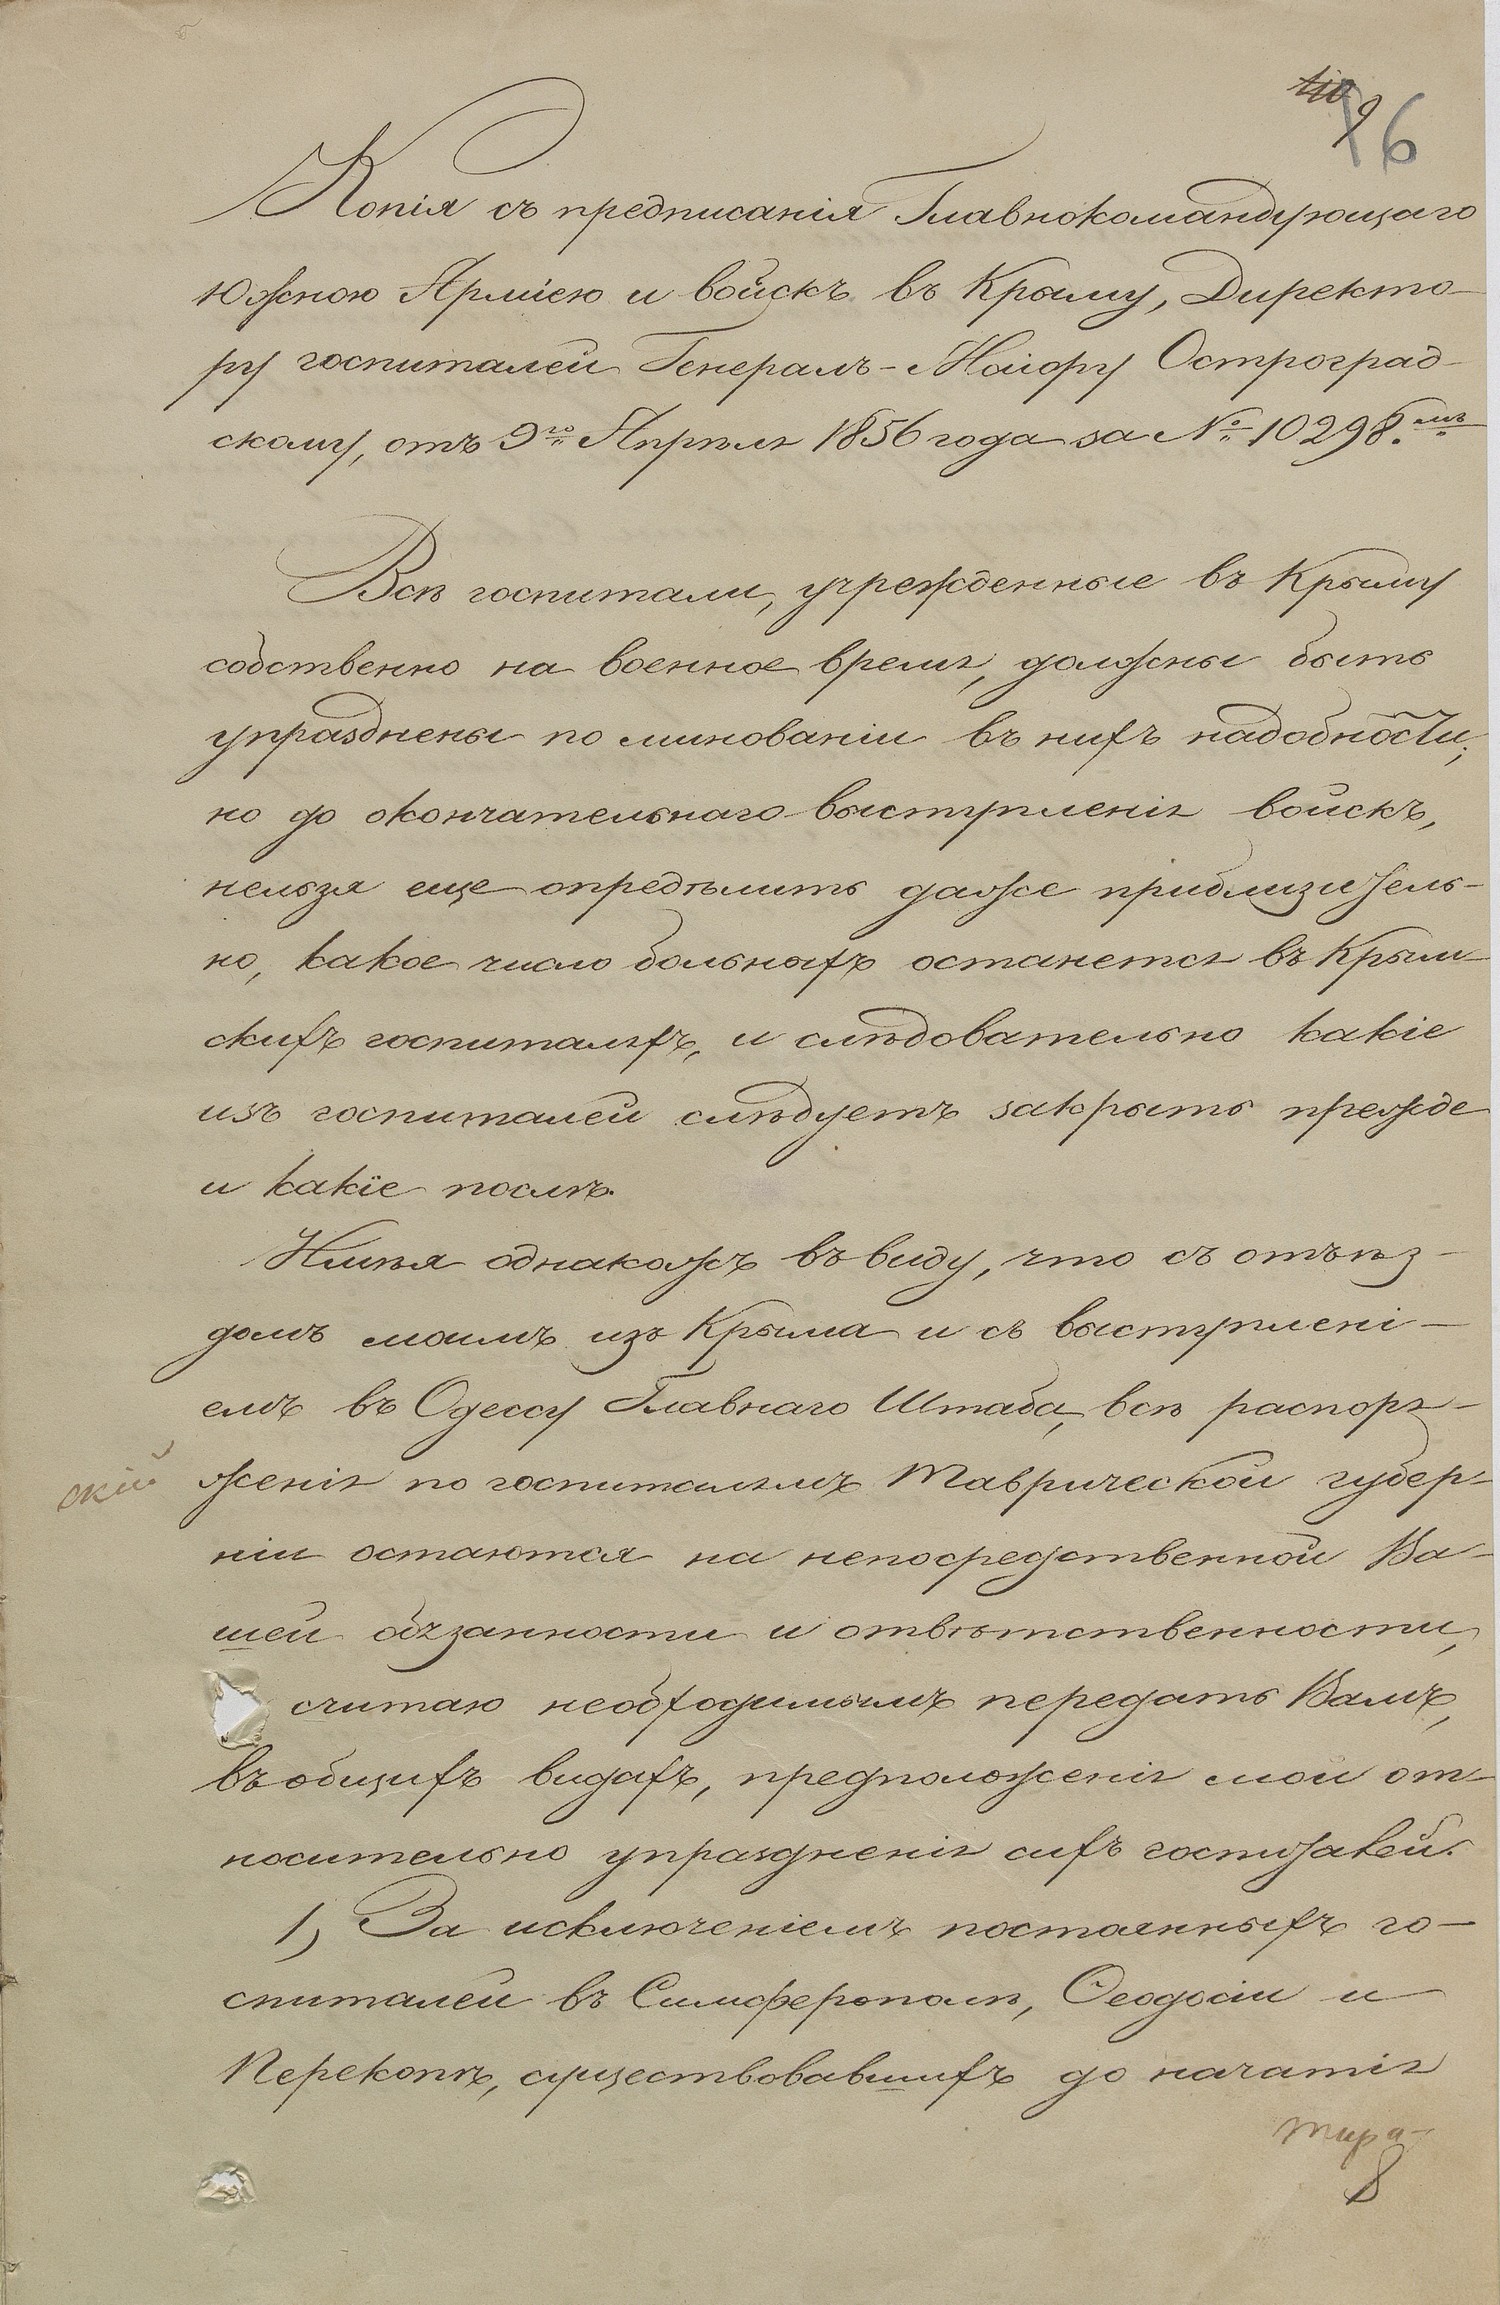 96
Копія съ предписанія Главнокомандующаго
Южною Арміею и войскъ въ Крыму, Директо-
ру госпиталей Генералъ-Маіору Остроград-
скому, отъ 9го Апрѣля 1856 года за № 10298.мъ
Всѣ госпитали, учрежденные въ Крыму
собственно на военное время, должны быть
упразднены по минованіи въ нихъ надобности;
но до окончательнаго выступленія войскъ,
нельзя еще опредѣлить даже приблизитель-
но, какое число больныхъ останется въ Крым-
скихъ госпиталяхъ, и слѣдовательно какіе
изъ госпиталей слѣдуетъ закрыть прежде
и какіе послѣ.
Имѣя однакожъ въ виду, что съ отъѣз-
домъ моимъ изъ Крыма и съ выступлені-
емъ въ Одессу Главнаго Штаба, всѣ распоря-
скій
женія по госпиталямъ Таврической губер-
ніи остаются на непосредственной Ва-
шей обязанности и отвѣтственности,
считаю необходимымъ передать Вамъ,
въ общихъ видахъ, предположенія мои от-
носительно упраздненія сихъ госпиталей.
1) За исключеніемъ постоянныхъ го-
спиталей въ Симферополѣ, Ѳеодосіи и
Перекопѣ, существовавшихъ до начатія
тира-
8